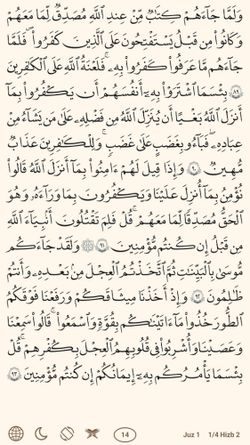 وَلَمَّا جَآءَهُمْ كِتَٰبٌ مِّنْ عِندِ ٱللَّهِ مُصَدِّقٌ لِّمَا مَعَهُمْ
وَكَانُوا۟ مِن قَبْلُ يَسْتَفْتِحُونَ عَلَى ٱلَّذِينَ كَفَرُوا۟ فَلَمَّا
جَآءَهُم مَّا عَرَفُوا۟ كَفَرُوا۟ بِهِۦ ۚ فَلَعْنَةُ ٱللَّهِ عَلَى ٱلْكَٰفِرِينَ
٨٩ بِئْسَمَا ٱشْتَرَوْا۟ بِهِۦٓ أَنفُسَهُمْ أَن يَكْفُرُوا۟ بِمَآ
أَنزَلَ ٱللَّهُ بَغْيًا أَن يُنَزِّلَ ٱللَّهُ مِن فَضْلِهِۦ عَلَىٰ مَن يَشَآءُ مِنْ
عِبَادِهِۦ ۖ فَبَآءُو بِغَضَبٍ عَلَىٰ غَضَبٍ ۚ وَلِلْكَٰفِرِينَ عَذَابٌ
مُّهِينٌ ٩٠ وَإِذَا قِيلَ لَهُمْ ءَامِنُوا۟ بِمَآ أَنزَلَ ٱللَّهُ قَالُوا۟
نُؤْمِنُ بِمَآ أُنزِلَ عَلَيْنَا وَيَكْفُرُونَ بِمَا وَرَآءَهُۥ وَهُوَ
ٱلْحَقُّ مُصَدِّقًا لِّمَا مَعَهُمْ ۗ قُلْ فَلِمَ تَقْتُلُونَ أَنۢبِيَآءَ ٱللَّهِ
مِن قَبْلُ إِن كُنتُم مُّؤْمِنِينَ ٩١ ۞ وَلَقَدْ جَآءَكُم
مُّوسَىٰ بِٱلْبَيِّنَٰتِ ثُمَّ ٱتَّخَذْتُمُ ٱلْعِجْلَ مِنۢ بَعْدِهِۦ وَأَنتُمْ
ظَٰلِمُونَ ٩٢ وَإِذْ أَخَذْنَا مِيثَٰقَكُمْ وَرَفَعْنَا فَوْقَكُمُ
ٱلطُّورَ خُذُوا۟ مَآ ءَاتَيْنَٰكُم بِقُوَّةٍ وَٱسْمَعُوا۟ ۖ قَالُوا۟ سَمِعْنَا
وَعَصَيْنَا وَأُشْرِبُوا۟ فِى قُلُوبِهِمُ ٱلْعِجْلَ بِكُفْرِهِمْ ۚ قُلْ
بِئْسَمَا يَأْمُرُكُم بِهِۦٓ إِيمَٰنُكُمْ إِن كُنتُم مُّؤْمِنِينَ ٩٣
14 Juz 1 1/4 Hizb 2